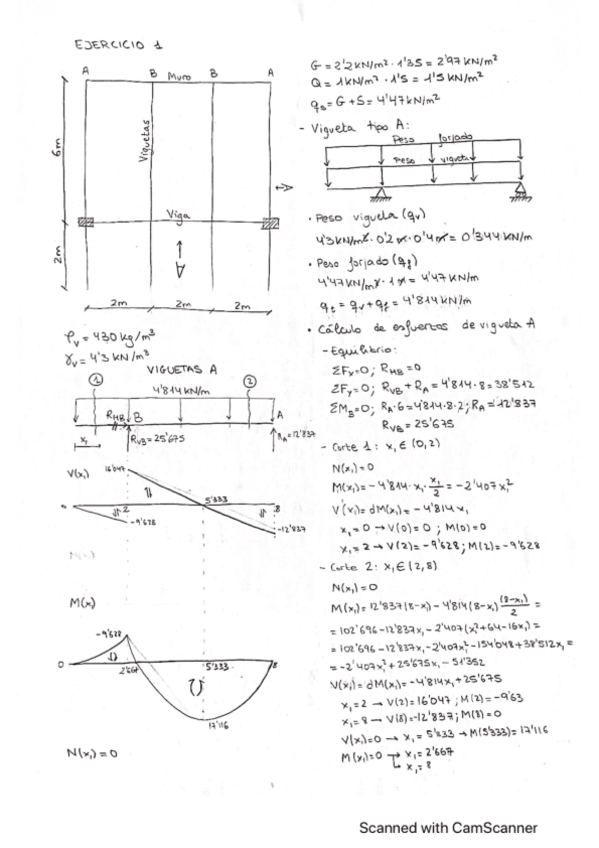 EJERCICIO 1
A B Muro B A
Viguetas
6m
Viga
A
A
2m
2m 2m 2m
ρv = 430 kg/m³
γv = 4'3 kN/m³
VIGUETAS A
1 2
4'814 kN/m
RHB B A
x₁ RVB = 25'675 RA = 12'837
V(x₁) 16'047
0 2 5'333 8
-9'628 -12'837
M(x)
-9'628
0 2'667 5'333 8
17'116
N(x₁) = 0
G = 2'2 kN/m² · 1'35 = 2'97 kN/m²
Q = 1 kN/m² · 1'5 = 1'5 kN/m²
= G + S = 4'47 kN/m²
- Vigueta tipo A:
Peso forjado
Peso vigueta
· Peso vigueta (qv)
4'3 kN/m³ · 0'2 m · 0'4 m = 0'344 kN/m
· Peso forjado (qf)
4'47 kN/m² · 1 m = 4'47 kN/m
qt = qv + qf = 4'814 kN/m
· Cálculo de esfuerzos de vigueta A
- Equilibrio:
ΣFx = 0; RHB = 0
ΣFy = 0; RVB + RA = 4'814 · 8 = 38'512
ΣMB = 0; RA · 6 = 4'814 · 8 · 2; RA = 12'837
RVB = 25'675
- Corte 1: x₁ ∈ (0,2)
N(x₁) = 0
M(x₁) = -4'814 · x₁ · x₁/2 = -2'407x₁²
V(x₁) = dM(x₁) = -4'814x₁
x₁ = 0 → V(0) = 0; M(0) = 0
x₁ = 2 → V(2) = -9'628; M(2) = -9'628
- Corte 2: x₁ ∈ (2,8)
N(x₁) = 0
M(x₁) = 12'837(8-x₁) - 4'814(8-x₁) (8-x₁)/2 =
= 102'696 - 12'837x₁ - 2'407(x₁² + 64 - 16x₁) =
= 102'696 - 12'837x₁ - 2'407x₁² - 154'048 + 38'512x₁ =
= -2'407x₁² + 25'675x₁ - 51'352
V(x₁) = dM(x₁) = -4'814x₁ + 25'675
x₁ = 2 → V(2) = 16'047; M(2) = -9'63
x₁ = 8 → V(8) = -12'837; M(8) = 0
V(x₁) = 0 → x₁ = 5'333 → M(5'333) = 17'116
M(x₁) = 0 → x₁ = 2'667
x₁ = 8
Scanned with CamScanner